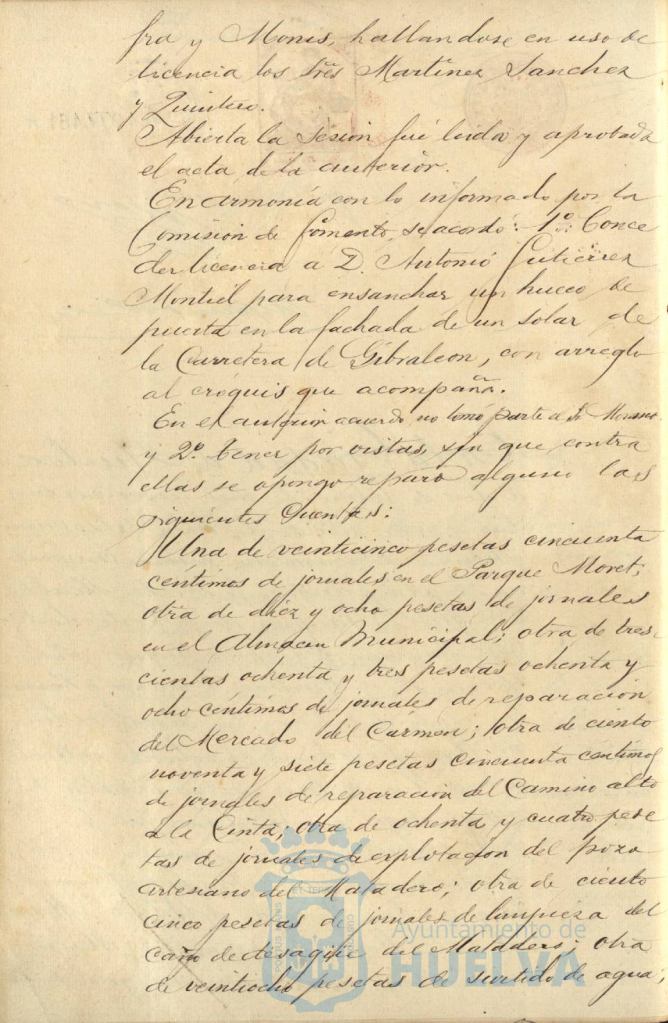 fra y Monis, hallandose en uso de
licencia los Sres Martinez Sanchez
y Quintero.
Abierta la sesion fué leida y aprobada
el acta de la anterior.
En armonía con lo informado por la
Comisión de Fomento, se acordó: 1º: Conce
der licencia a D. Antonio Gutiérrez
Montiel para ensanchar un hueco de
puerta en la fachada de un solar de
la Carretera de Gibraleon, con arreglo
al croquis que acompaña.
En el anterior acuerdo no tomó parte el Sr. Moreno
y 2º. tener por vistas, sin que contra
ellas se oponga reparo alguno las
siguientes cuentas:
Una de veinticinco pesetas cincuenta
céntimos de jornales en el Parque Moret;
otra de diez y ocho pesetas de jornales
en el Almacen Municipal; otra de tres-
cientas ochenta y tres pesetas ochenta y
ocho céntimos de jornales de reparacion
del Mercado del Cármen; otra de ciento
noventa y siete pesetas cincuenta centimos
de jornales de reparacion del Camino alto
a la Cinta; otra de ochenta y cuatro pese
tas de jornales de explotacion del pozo
artesiano del Matadero; otra de ciento
cinco pesetas de jornales de limpieza del
caño de desagüe del Matadero; otra
de veintiocho pesetas de surtido de agua;
Ayuntamiento de
HUELVA